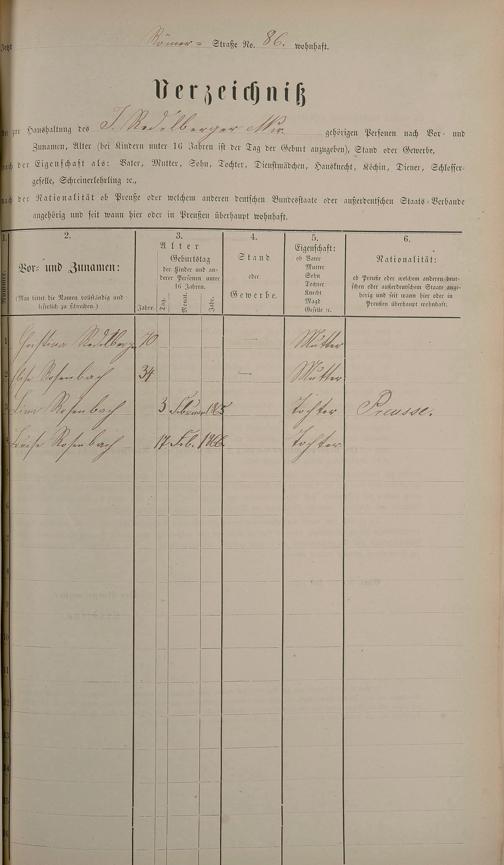 Römer- Straße No. 86. wohnhaft.
Verzeichniß
zur Haushaltung des J. Redelberger Wwe. gehörigen Personen nach Vor- und
Zunamen, Alter (bei Kindern unter 16 Jahren ist der Tag der Geburt anzugeben), Stand oder Gewerbe,
nach der Eigenschaft als: Vater, Mutter, Sohn, Tochter, Dienstmädchen, Hausknecht, Köchin, Diener, Schlosser-
geselle, Schreinerlehrling ꝛc.,
nach der Nationalität ob Preuße oder welchem anderen deutschen Bundesstaate oder außerdeutschen Staats-Verbande
angehörig und seit wann hier oder in Preußen überhaupt wohnhaft.
1. 2. 3. 4. 5. 6.
Nummer.
Vor- und Zunamen:
(Man bittet die Namen vollständig und
leserlich zu schreiben.)
Alter
Jahre.
Geburtstag
der Kinder und an-
derer Personen unter
16 Jahren.
Tag. Monat. Jahr.
Stand
oder
Gewerbe.
Eigenschaft:
ob Vater
Mutter
Sohn
Tochter
Knecht
Magd
Geselle ꝛc.
Nationalität:
ob Preuße oder welchem anderen deut-
schen oder außerdeutschen Staate ange-
hörig und seit wann hier oder in
Preußen überhaupt wohnhaft.
1 Christina Redelberger 70 — Mutter
2 Rosenbach 34 — Mutter
Lina Rosenbach 3 Februar 1865 Tochter Preusse.
Luise Rosenbach 17 Feb. 1866 Tochter